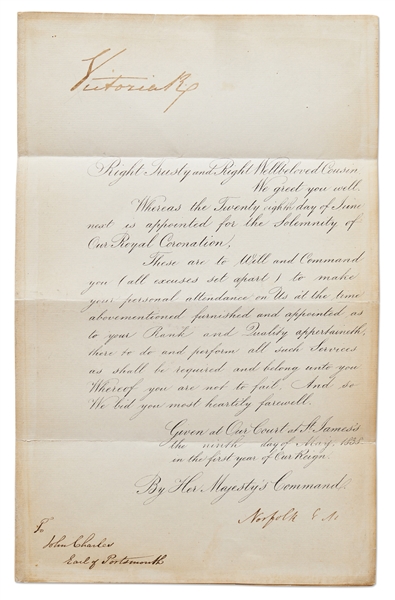 Victoria R
Right Trusty and Right Wellbeloved Cousin
We greet you well.
Whereas the Twenty eighth day of June
next is appointed for the Solemnity of
Our Royal Coronation,
These are to Will and Command
you (all excuses set apart) to make
your personal attendance on Us at the time
abovementioned furnished and appointed as
to your Rank and Quality appertaineth,
there to do and perform all such Services
as shall be required and belong unto you
Whereof you are not to fail. And so
We bid you most heartily farewell.
Given at Our Court at St. James's
the ninth day of May, 1838
in the first year of Our Reign.
By Her Majesty's Command.
Norfolk E M
To
John Charles
Earl of Portsmouth